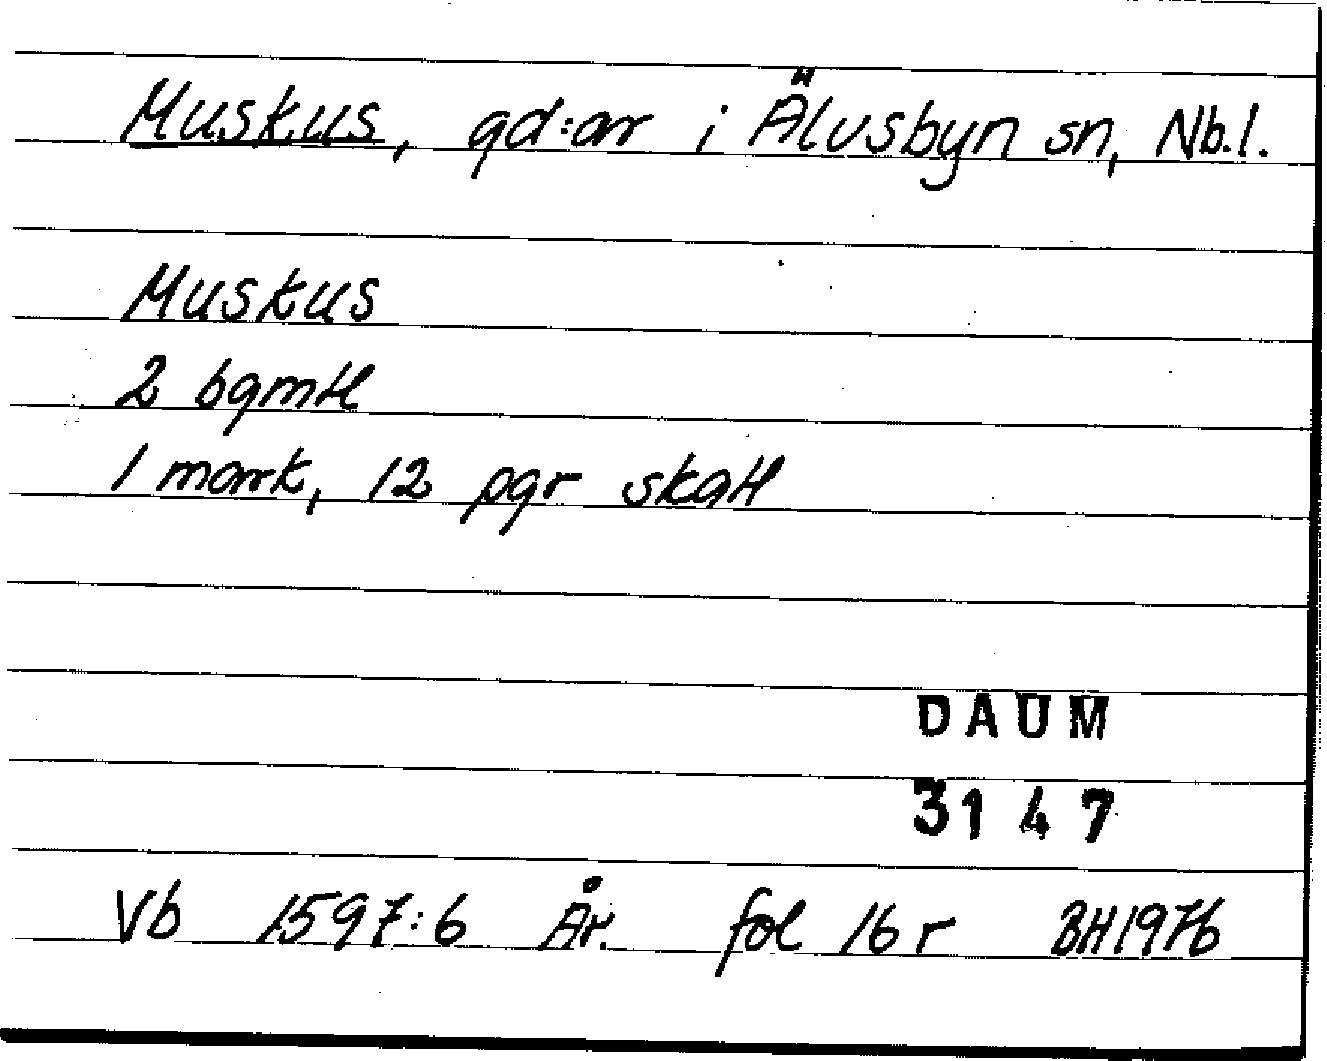 Muskus, gd:ar i Älvsbyn sn, Nb.l.
Muskus
2 bgmtl
1 mark, 12 pgr skatt
DAUM
3147
Vb 1597:6 År. fol 16 r BH1976